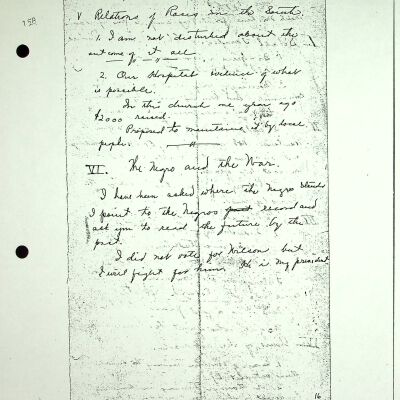 158
V Relations of Races in the South
1. I am not disturbed about the
out come of it all
2. Our Hospital evidence of what
is possible.
In this church one year ago
$2000 raised.
Proposed to maintain it by local
people.
VI. The Negro and the War.
I have been asked where the Negro stands
I point to the Negros past record and
ask you to read the future by the
past.
I did not vote for Wilson but
I will fight for him. He is my president
16